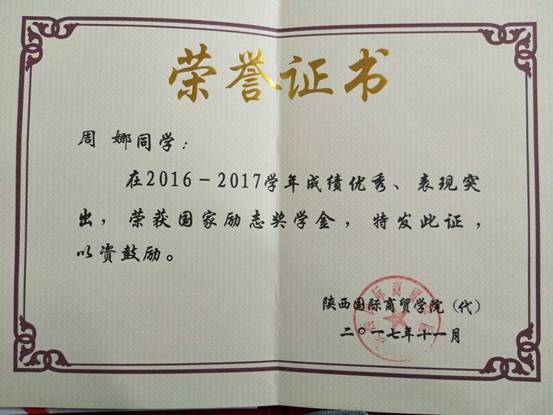 荣誉证书
周娜同学：
在2016－2017学年成绩优秀、表现突
出，荣获国家励志奖学金，特发此证，
以资鼓励。
陕西国际商贸学院（代）
二〇一七年十一月